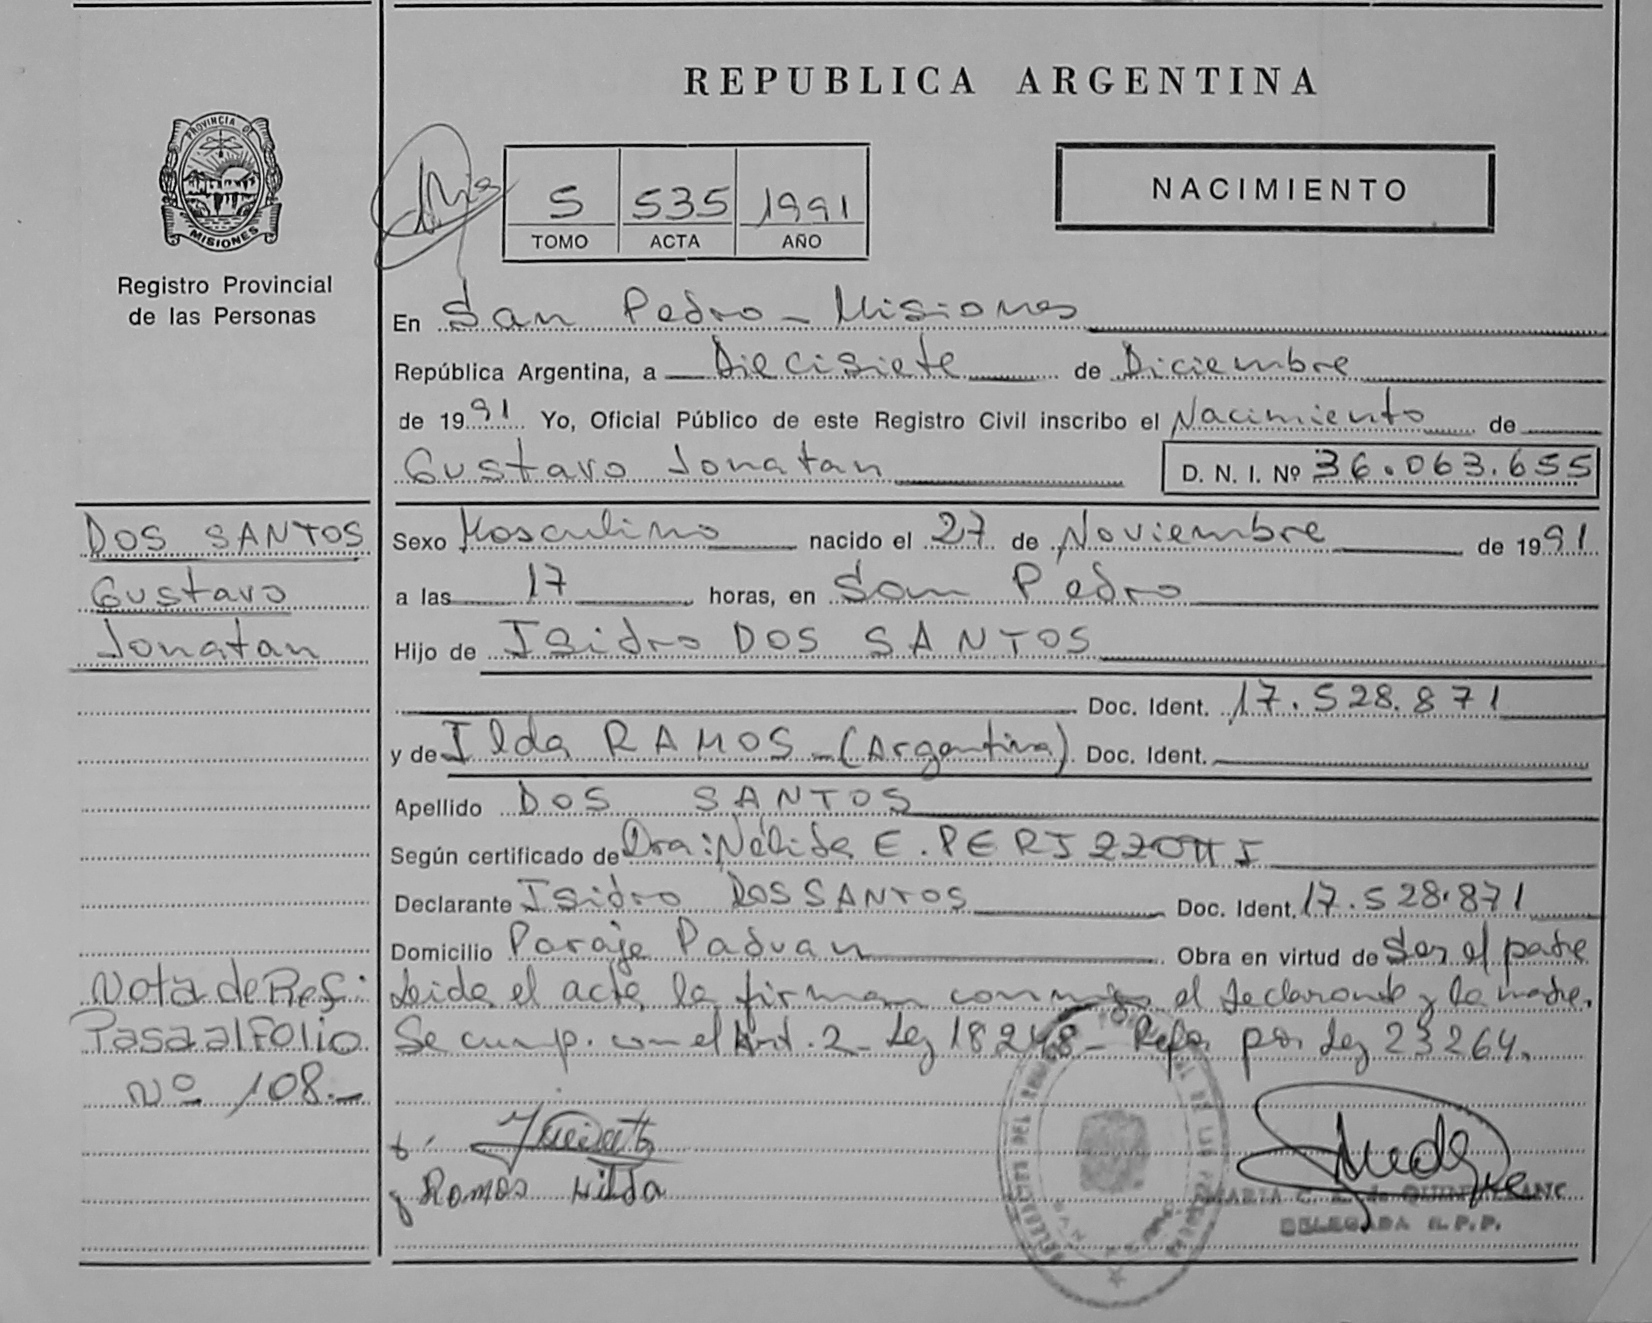 REPUBLICA ARGENTINA
PROVINCIA DE
MISIONES
Registro Provincial
de las Personas
S 535 1991
TOMO ACTA AÑO
NACIMIENTO
En San Pedro - Misiones
República Argentina, a Diecisiete de Diciembre
de 1991 Yo, Oficial Público de este Registro Civil inscribo el Nacimiento de
Gustavo Jonatan D. N. I. Nº 36.063.655
DOS SANTOS
Gustavo
Jonatan
Sexo Masculino nacido el 27 de Noviembre de 1991
a las 17 horas, en San Pedro
Hijo de Isidro DOS SANTOS
Doc. Ident. 17.528.871
y de Ilda RAMOS - (Argentina) Doc. Ident.
Apellido DOS SANTOS
Según certificado de Dra: Nélida E. PERIZZOTTI
Declarante Isidro DOS SANTOS Doc. Ident. 17.528.871
Domicilio Paraje Paduan Obra en virtud de Ser el padre
Leida el acta, la firman conmigo el declarante y la madre.
Se cump. con el Art. 2 - Ley 18248 - Refo. por Ley 23264.
Nota de Ref:
Pasa al Folio
Nº 108.-
Ramos Hilda
MARIA C.
DELEGADA R.P.P.